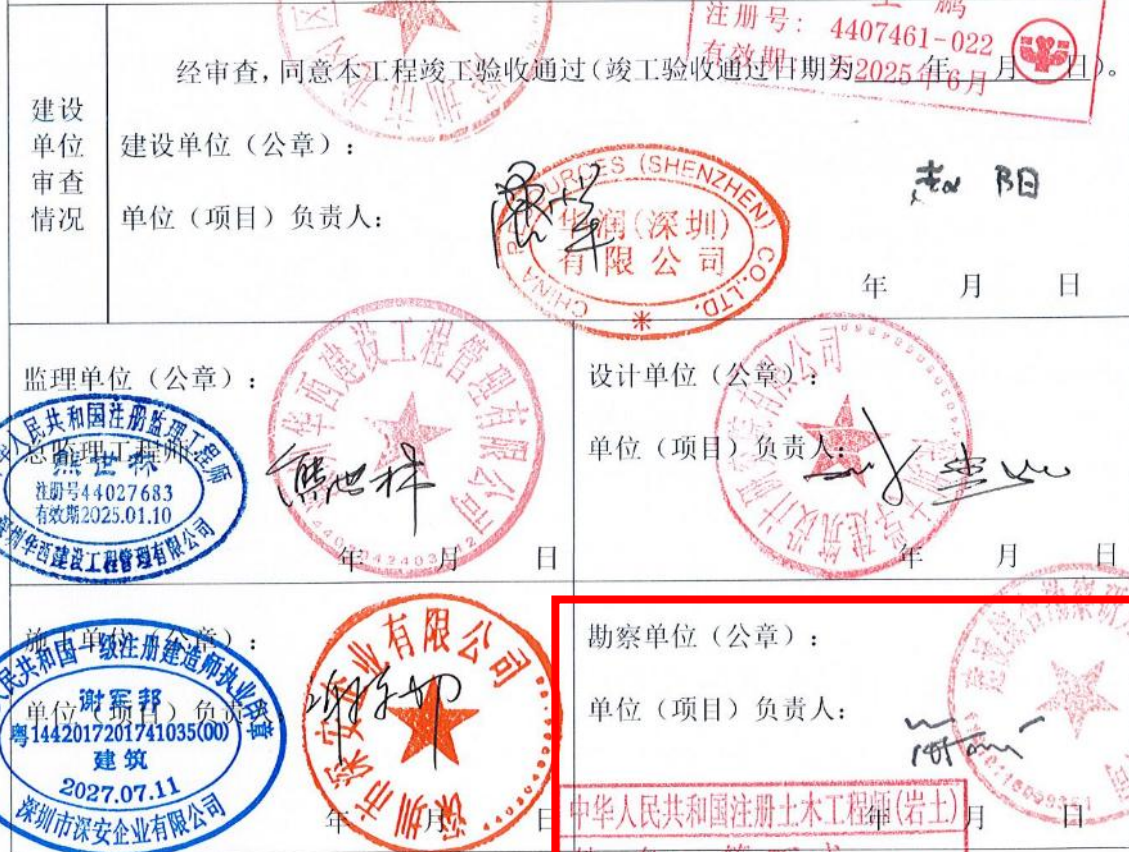 注册号：4407461-022
有效期：至2025年6月
经审查，同意本工程竣工验收通过（竣工验收通过日期为 年 月 日）。
建设
单位
审查
情况
建设单位（公章）：
单位（项目）负责人：
CHINA RESOURCES (SHENZHEN) CO.,LTD.
华润(深圳)
有限公司
赵阳
年 月 日
监理单位（公章）：
总监理工程师：
人民共和国注册监理工程师
熊世林
注册号44027683
有效期2025.01.10
深圳华西建设工程管理有限公司
深圳华西建设工程管理有限公司
熊世林
年 月 日
设计单位（公章）：
单位（项目）负责人：
年 月 日
施工单位（公章）：
单位（项目）负责
人民共和国一级注册建造师执业印章
谢军邦
粤1442017201741035(00)
建筑
2027.07.11
深圳市深安企业有限公司
深圳市深安企业有限公司
谢军邦
年 月 日
勘察单位（公章）：
单位（项目）负责人：
中华人民共和国注册土木工程师(岩土)
年 月 日